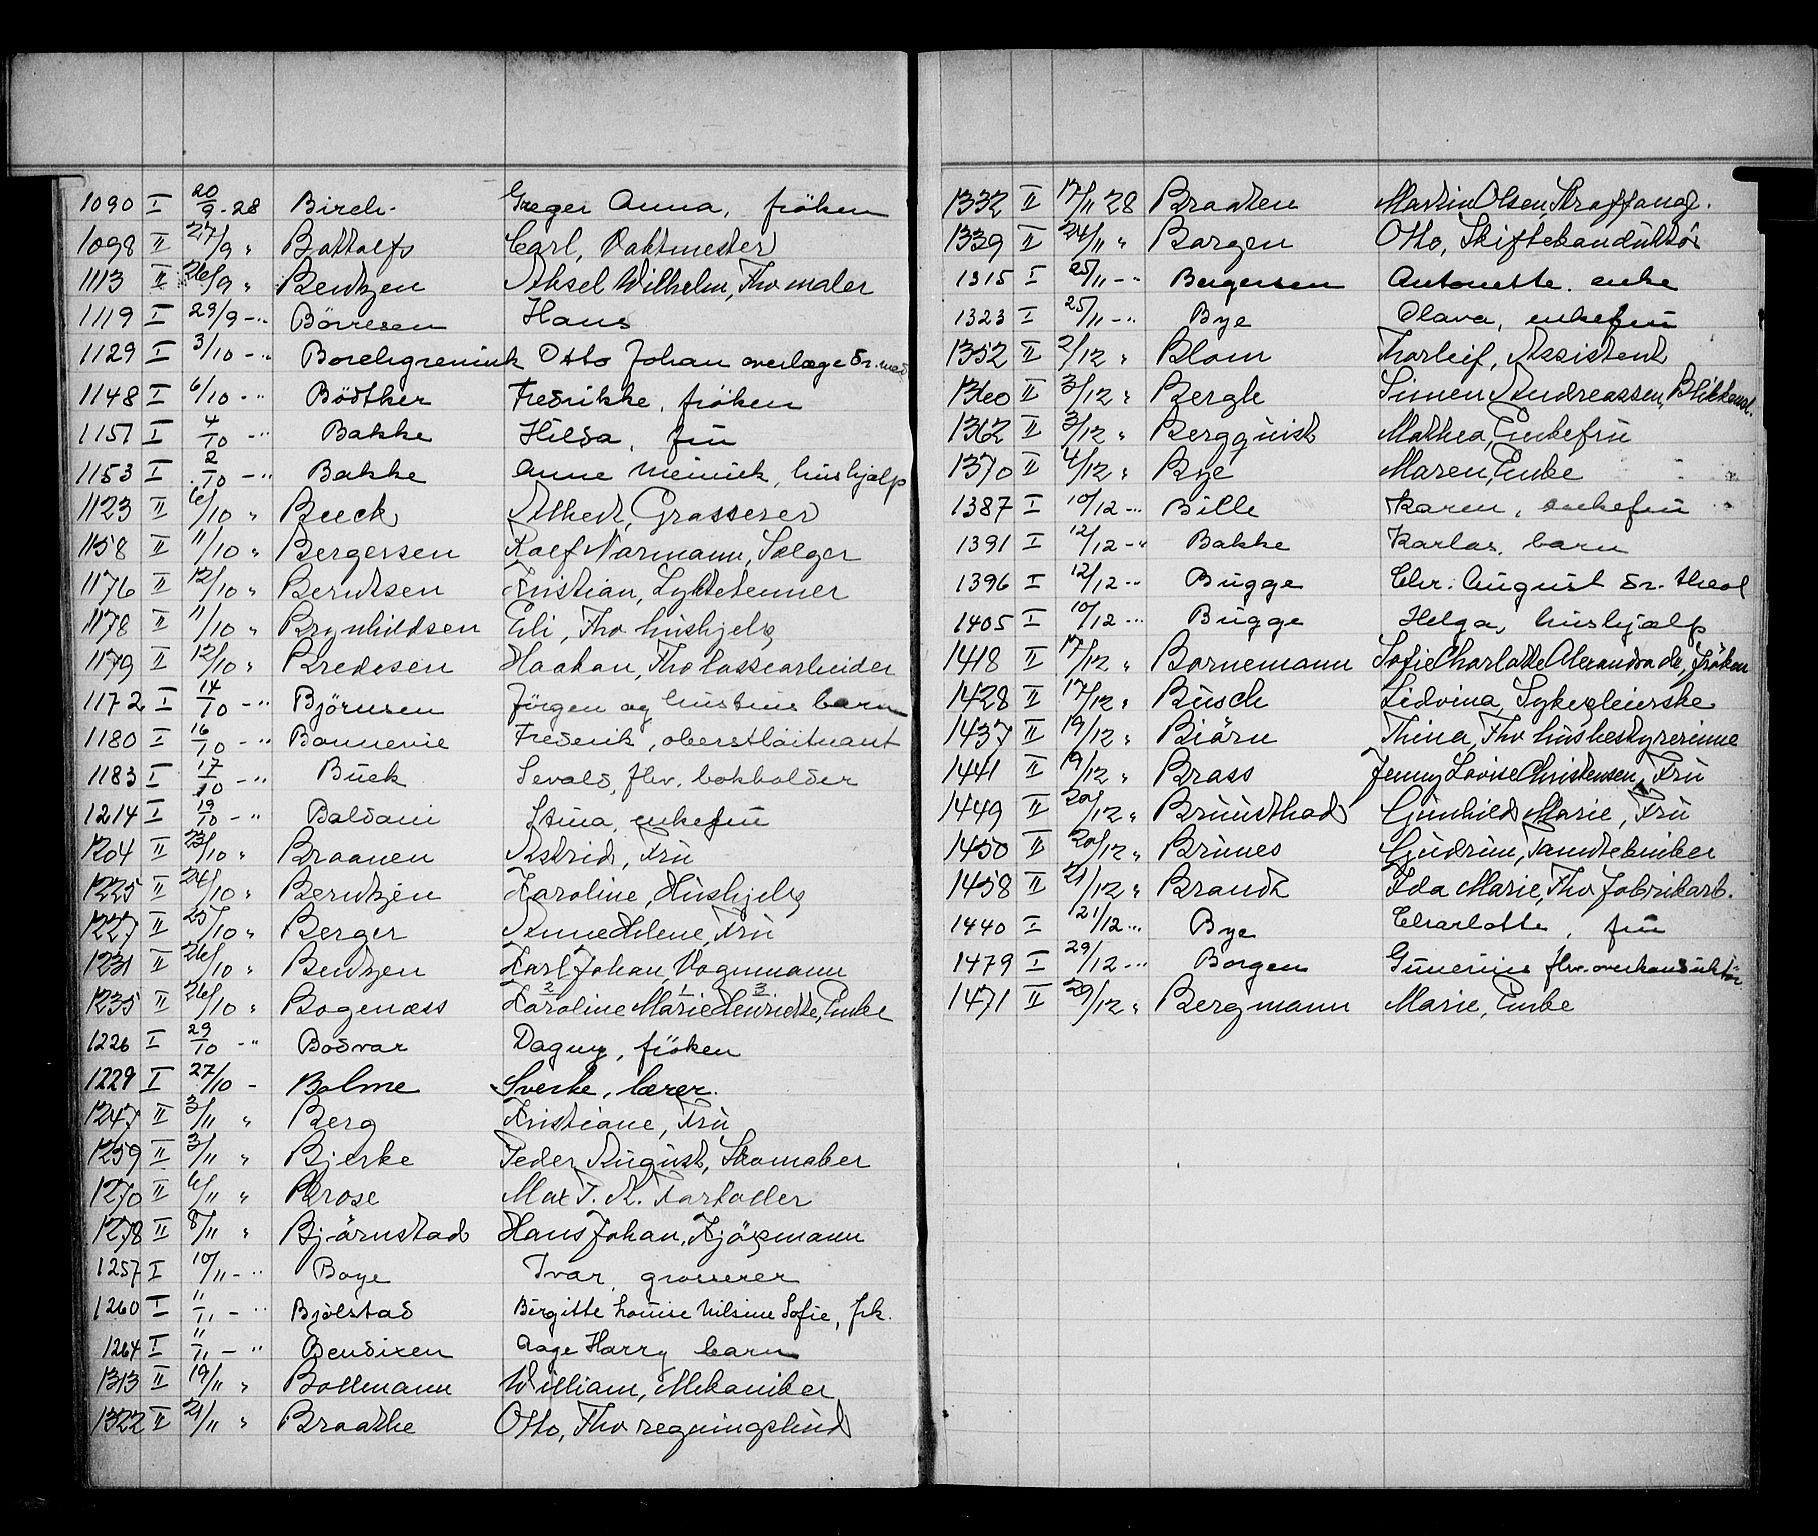 1090 I 20/9-28 Birch- Greger Anna, fröken
1098 II 27/9 " Battolfs Carl, Vaktmester
1113 II 26/9 " Bentzen Aksel Wilhelm, Fhv maler
1119 I 29/9-" Börresen Hans
1129 I 3/10-" Borchgrevink Otto Johan overlæge dr. med
1148 I 6/10-" Bödtker Fredrikke, fröken
1151 I 4/10-" Bakke Hilda, frü
1153 I 2/10-" Bakke Anne, hüshjælp
1123 II 6/10 " Beeck Albert, Grosserer
1158 II 11/10 " Bergersen Rolf Normann, Sælger
1176 II 12/10 " Berntsen Kristian, Lyktetenner
1178 II 11/10 " Brynhildsen Eli, Fhv hüshjelp
1179 II 12/10 " Bredesen Haakon, Fhv lossearbeider
1172 I 14/10-" Björnsen Jörgen og hüstrüs barn
1180 I 16/10-" Bonnevie Frederik, oberstlöitnant
1183 I 17/10-" Bück Sevald, fhv. bokholder
1214 I 19/10-" Baldani Stina, enkefrü
1204 II 23/10 " Braanen Astrid, Frü
1225 II 24/10 " Berntzen Karoline, Hüshjelp
1227 II 25/10 " Berger Anne Helene, Frü
1231 II 26/10 " Bentzen Karl Johan, Vognmann
1235 II 26/10 " Bogenæss Karoline 2 Marie 1 Henriette 3, Enke
1226 I 29/10-" Bodvar Dagny, fröken
1229 I 27/10- Bolme Sverke, lærer.
1247 II 3/11 " Berg Kristiane, Frü
1259 II 3/11 " Bjerke Peder August, Skomaker
1270 II 6/11 " Brose Max T. A. Fortoller
1278 II 8/11 " Björnstad Hans Johan, Kjöpmann
1257 I 10/11-" Boye Ivar, grosserer
1260 I 11/11-" Bjölstad Birgitte Louise Nilsine Sofie, frk.
1264 I 11/11-" Bendixen Aage Harry barn
1313 II 19/11 " Bollmann William, Mekaniker
1322 II 21/11 " Braathe Otto, Fhv regningsbüd
1332 II 17/11 28 Braaten Martin Olsen, Straffang.
1339 II 24/11 " Borgen Otto, Skiftekondüktör
1315 I 25/11-" Bergersen Antonette, enke
1323 I 25/11-" Bye Olava, enkefrü
1352 II 2/12 " Blom Thorleif, Assistent
1360 II 3/12 " Bergh Simen Andreassen, Blikkensl.
1362 II 3/12 " Bergquist Mathea, Enkefrü
1370 II 4/12 " Bye Maren, Enke
1387 I 10/12-" Bille Karen, enkefrü
1391 I 12/12-" Bakke Karlas. barn
1396 I 12/12-" Bugge Chr. August dr. theol
1405 I 10/12-" Bugge Helga, hüshjælp
1418 II 17/12 " Bornemann Sofie Charlotte Alexandra de, fröken
1428 II 17/12 " Büsch Lidvina, Sykepleierske
1437 II 19/12 " Biörn Thina, Fhv hüsbestyrerinne
1441 II 19/12 " Brass Jenny Lovise Christensen, Frü
1449 II 20/12 " Brüüsthad Günhild Marie, Frü
1450 II 20/12 " Brünes Güdrün, Tanntekniker
1458 II 21/12 " Brandt Ida Marie, Fhv fabrikarb.
1440 I 21/12-" Bye Charlotte, frü
1479 I 29/12-" Borgen Günerius fhv. overkondüktör
1471 II 29/12 " Bergmann Marie, Enke